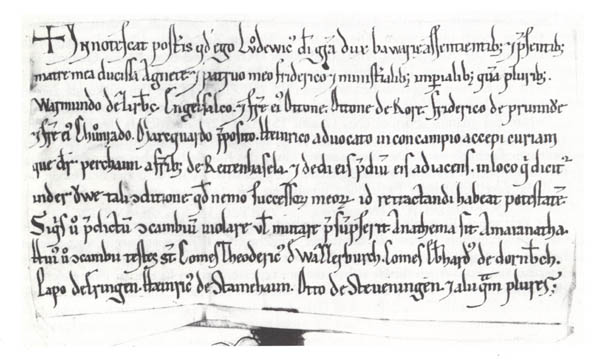 ✝ Innotescat post'is qd ego Lodewic' di gra dux bawarie assentientib; & psentib;
matre mea ducissa Agnete & patruo meo friderico & ministalib; inpialib; qua plurib;
Warmundo de Engelscalco & fre ei' Ottone. Ottone de friderico de
& fre ei' Chunrado. Mareguardo pposito. Heinrico advocato in concampio accepi curiam
que dr perchaim a frib; de Rettenhasela. & dedi eis pdiu eis adiacens. in loco q dicit'
inder owe tali ↄditione qd nemo successor meor id retractandi habeat potestate.
Siqs u pdictu ↄcambiu violare ul mutare psupserit Anathema sit. Amaranatha.
Hui' u ↄcambii testes st. Comes Theoderic' d Wasserburch. Comes d dornbch.
Lapo de Heinric' de Stameheim. Otto de Steveningen. & alii qm plures;